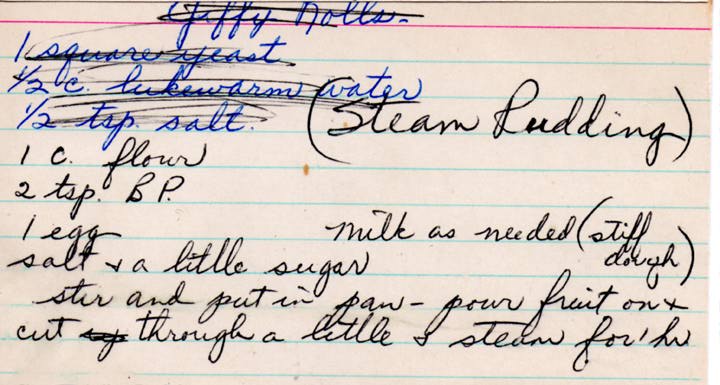 Jiffy Rolls-
1 square yeast
1/2 c. lukewarm water
1/2 tsp. salt.
(Steam Pudding)
1 c. flour
2 tsp. B P.
1 egg milk as needed (stiff dough)
salt + a little sugar
stir and put in pan - pour fruit on +
cut through a little & steam for 1 hr